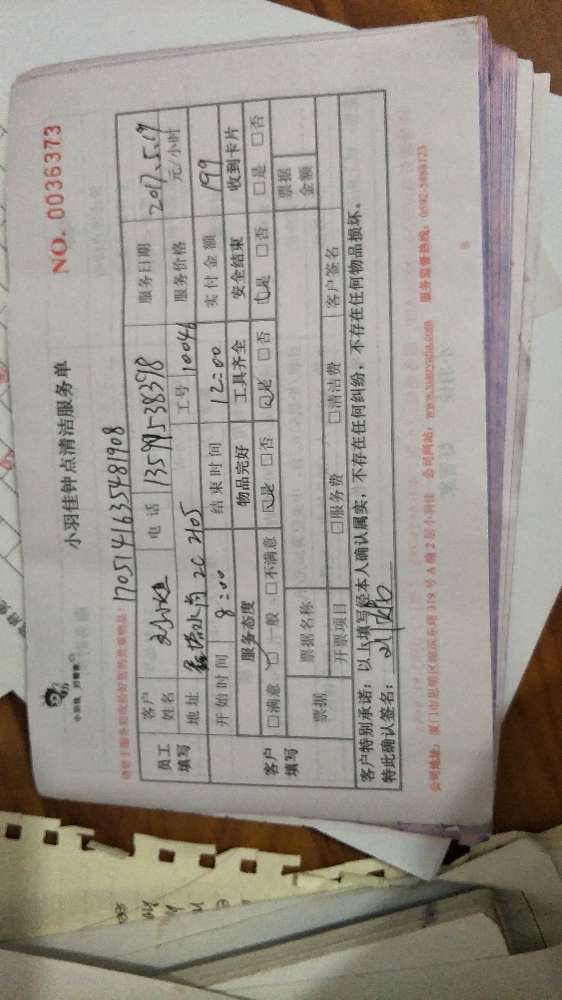 小羽佳钟点清洁服务单
NO. 0036373
17051416354819 08
员工填写
客户姓名
电话 13599538398
服务日期 2017.5.19
地址 2C 2105
工号 10046
服务价格 元/小时
开始时间 8:00
结束时间 12:00
实付金额 199
客户填写
服务态度 物品完好 工具齐全 安全结束 收到卡片
□满意 □一般 □不满意 □是 □否 □是 □否 □是 □否 □是 □否
票据 票据名称 票据金额
开票项目 □服务费 □清洁费 客户签名
客户特别承诺：以上填写经本人确认属实，不存在任何纠纷，不存在任何物品损坏。
特此确认签名：
公司地址：厦门市思明区 319号A幢2层小羽佳 公司网站：www.xiaoyujia.com 服务监督热线：0592-5888123